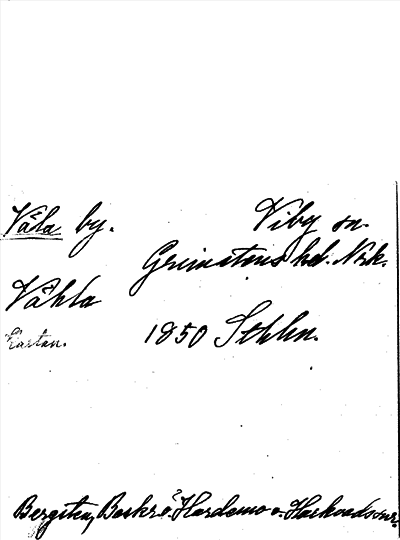 Våla by. Viby sn.
Grimstens hd. Nrk.
Våhla
Kartan. 1850 Sthlm.
Hardemo o.